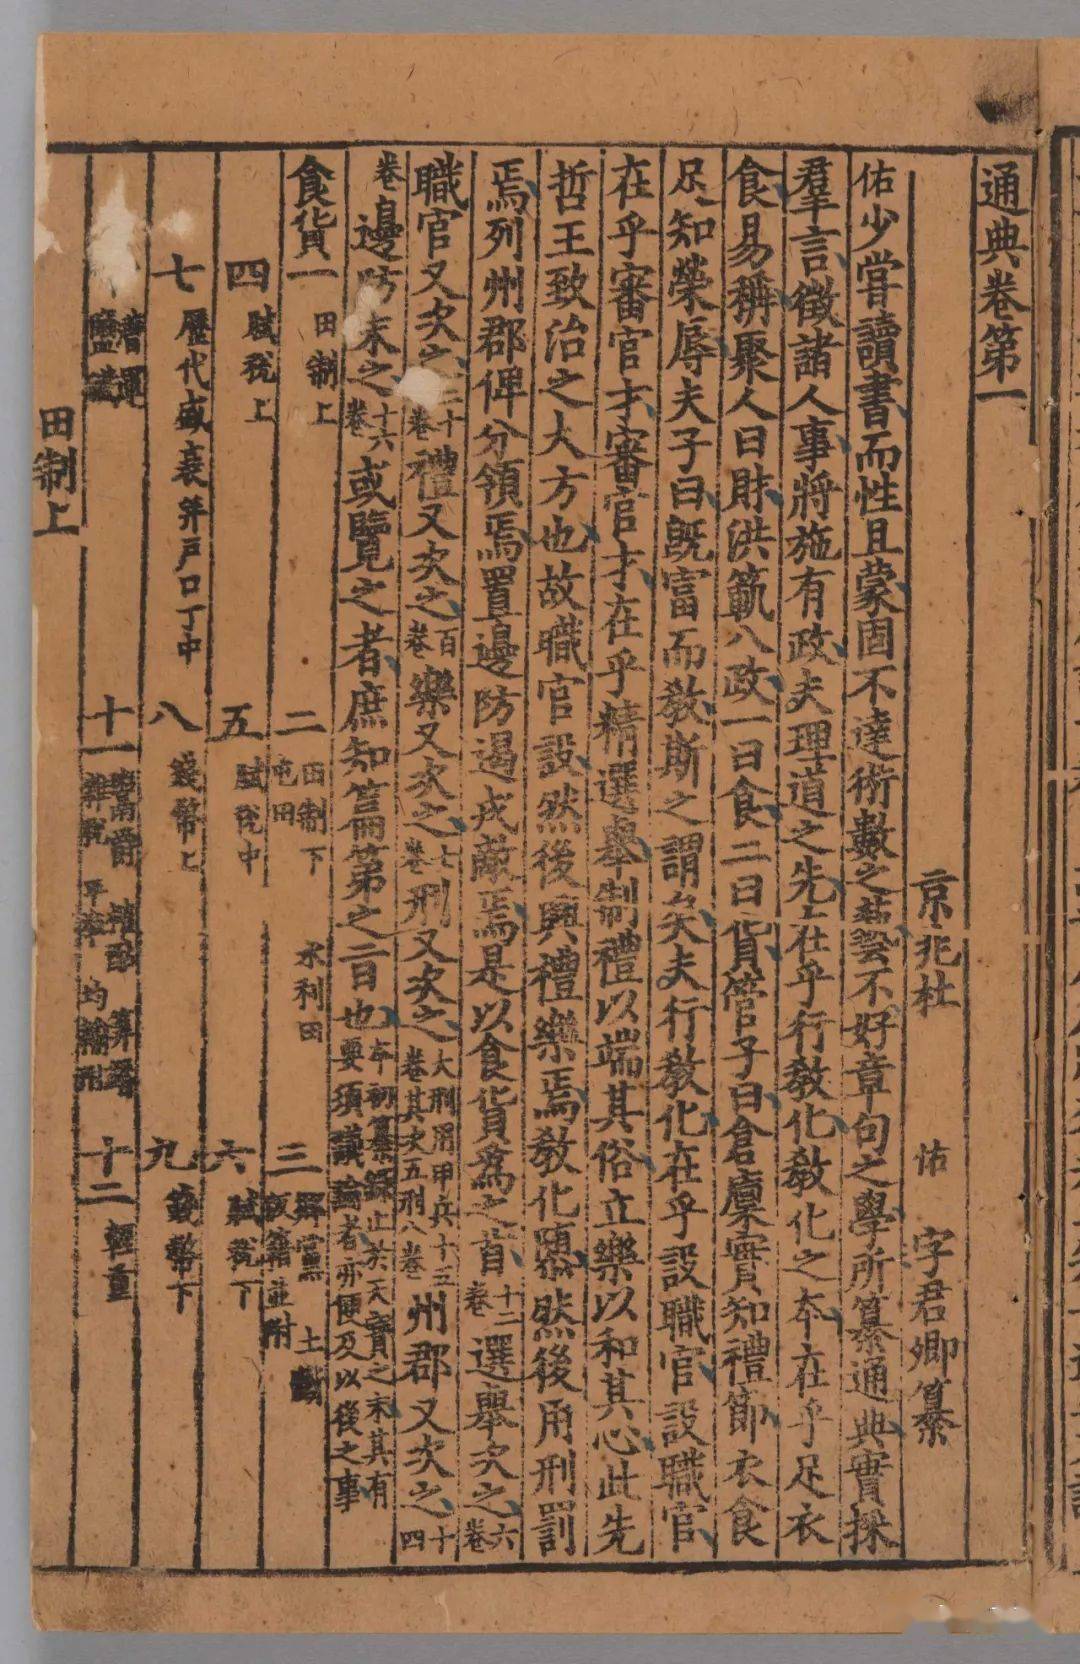 通典卷第一
京兆杜 佑 字君卿纂
佑少嘗讀書而性且蒙固不達術數之藝不好章句之學所纂通典實採
羣言徵諸人事將施有政夫理道之先在乎行教化教化之本在乎足衣
食易稱聚人曰財洪範八政一曰食二曰貨管子曰倉廩實知禮節衣食
足知榮辱夫子曰既富而教斯之謂矣夫行教化在乎設職官設職官
在乎審官才審官才在乎精選舉制禮以端其俗立樂以和其心此先
哲王致治之大方也故職官設然後興禮樂焉教化隳然後用刑罰
焉列州郡俾分領焉置邊防遏戎敵焉是以食貨為之首十二卷選舉次之六卷
職官又次之二十卷禮又次之百卷樂又次之七卷刑又次之大刑用甲兵十五卷其次五刑八卷州郡又次之十四
卷邊防末之十六卷或覽之者庶知篇第之旨也本初纂錄止於天寶之末其有要須議論者亦便及以後之事
食貨一 田制上 二 田制下 水利田 屯田 三 鄉黨 土斷 版籍並附
四 賦稅上 五 賦稅中 六 賦稅下
七 歷代盛衰并戶口丁中 八 錢幣上 九 錢幣下
漕運 鹽鐵 十一 鬻爵 榷酤 算緡 雜稅 平準 均輸附 十二 輕重
田制上